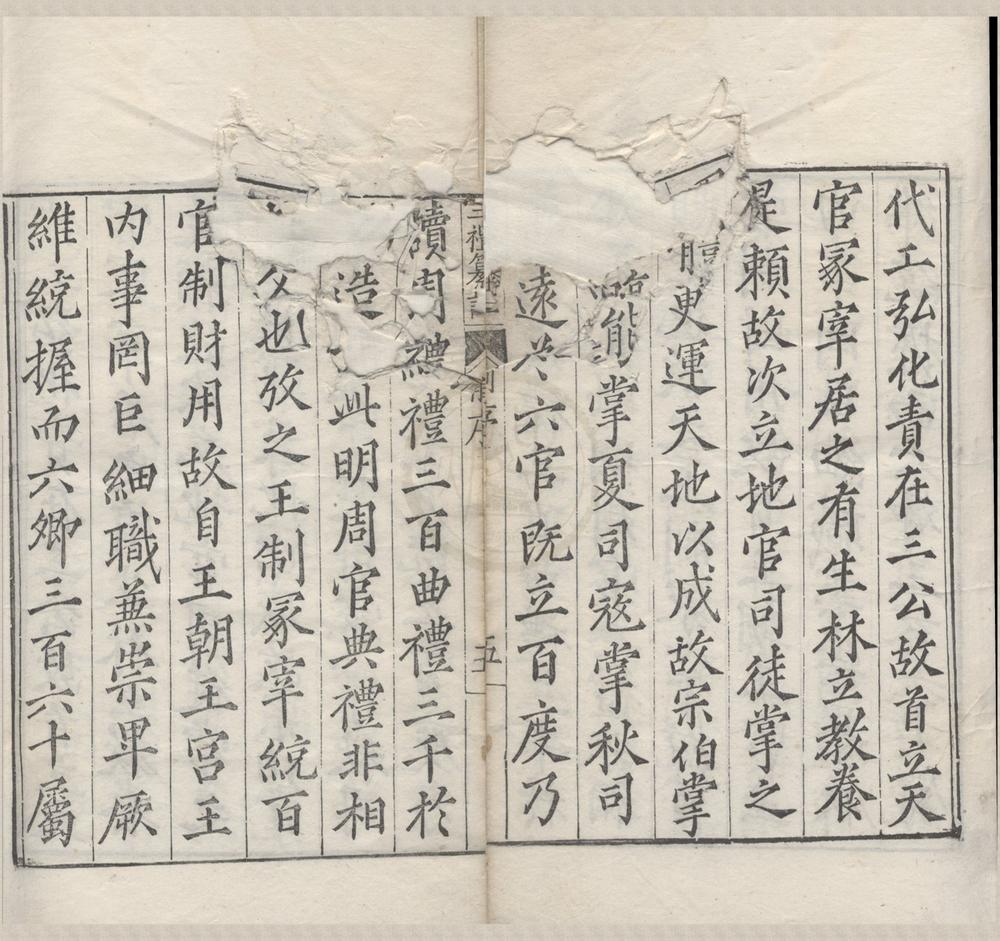 代工弘化責在三公故首立天
官冢宰居之有生林立教養
是賴故次立地官司徒掌之
更運天地以成故宗伯掌
能掌夏司寇掌秋司
遠六官既立百度乃
三禮纂註
序
五
讀周禮禮三百曲禮三千於
造此明周官典禮非相
也攷之王制冢宰統百
官制財用故自王朝王宮王
内事罔巨細職兼崇卑厥
維統握而六卿三百六十屬